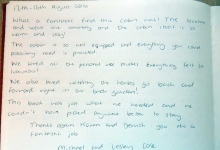 12th-16th August 2010
What a fantastic find this cabin was! The location
and views are amazing and the cabin itself is so
warm and cosy!
The cabin is so well equipped and everything you could
possibly need is provided.
We loved all the personal touches everything felt so
luxurious!
We also loved watching the horses go back and
forward right in our back garden!
This break was just what we needed and we
couldn't have picked anywhere better to stay
Thanks again and you did a
fantastic job
Michael and Lesley